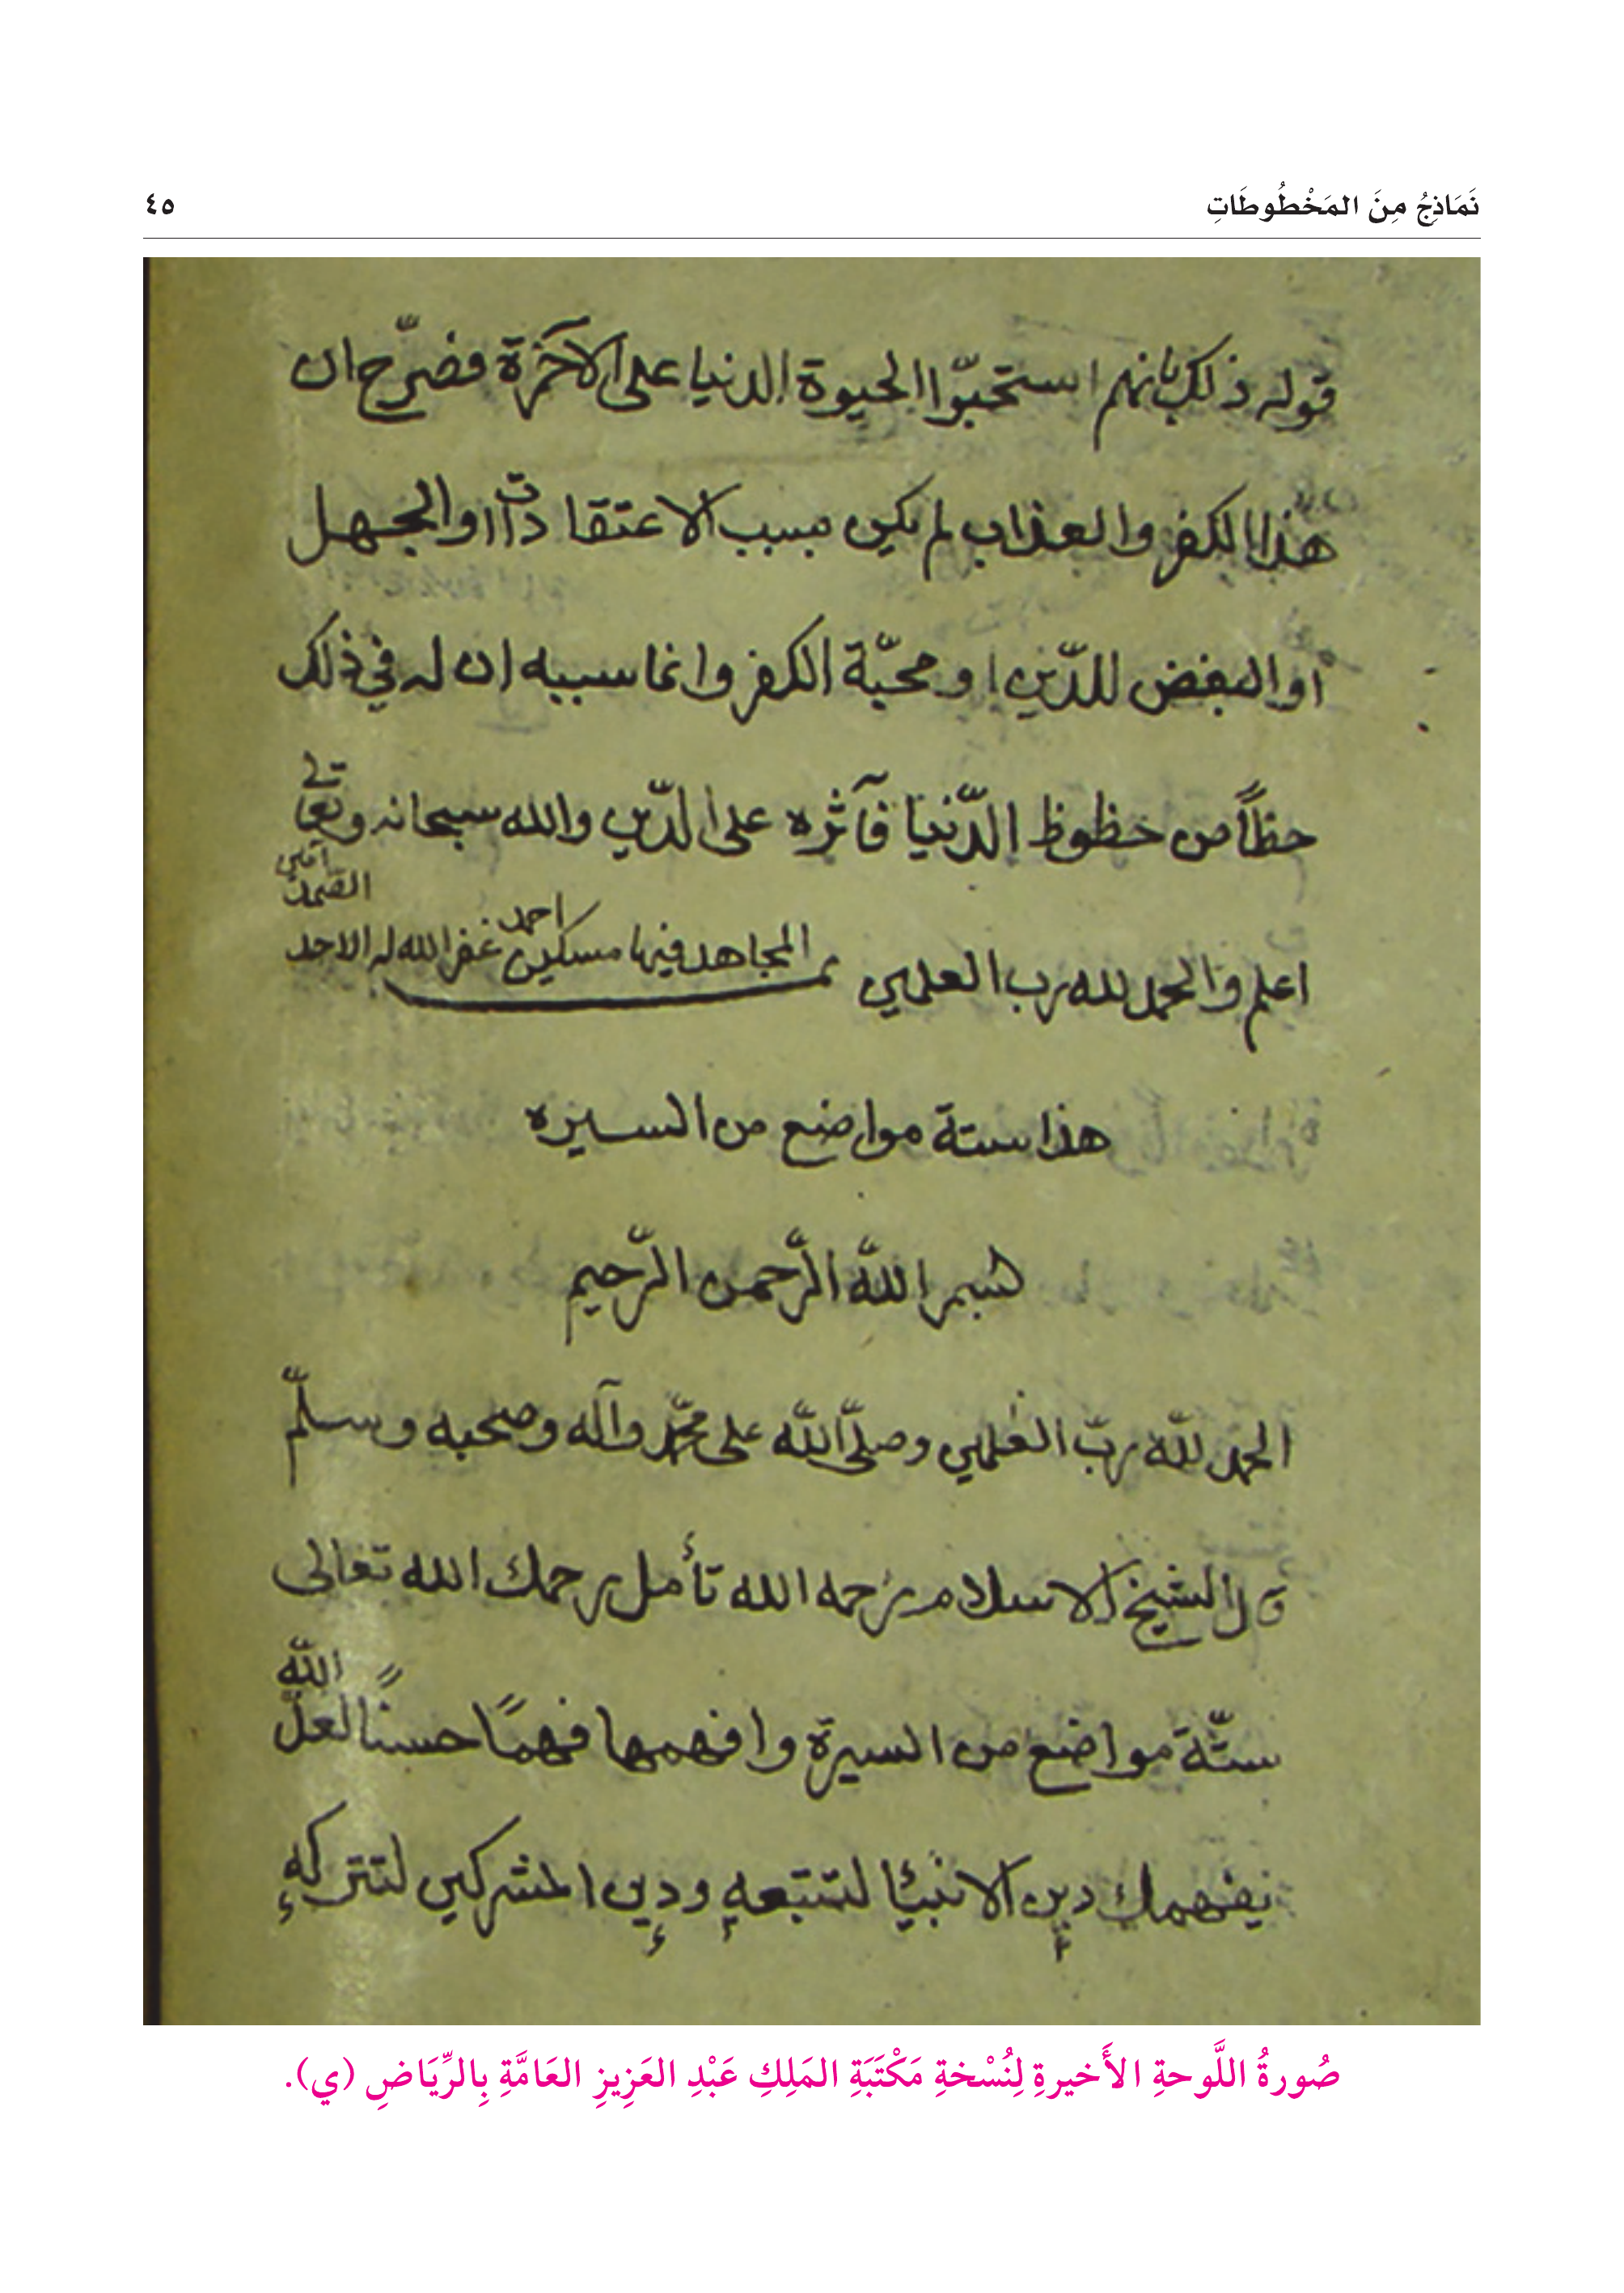 نَمَاذِجُ مِنَ المَخْطُوطَاتِ
٤٥
قوله ذلك بانهم استحبّوا الحيوة الدنيا على الآخرة فصرّح ان
هذا الكفر والعذاب لم يكن بسبب الاعتقادات او الجهل
او البغض للدّين او محبّة الكفر وانما سببه ان له في ذلك
حظاً من حظوظ الدّنيا فآثره على الدّين والله سبحانه وتعالى
اعلم والحمد لله رب العلمين
المجاهد فيها مسكين احمد غفر الله له الاحد الصمد آمين
هذا ستة مواضع من السيره
بسم اللّه الرّحمن الرّحيم
الحمد للّه ربّ العٰلمين وصلّى اللّه على محمّد وآله وصحبه وسلّم
قال الشيخ الاسلام رحمه الله تأمل رحمك الله تعالى
ستّة مواضع من السيرة وافهمها فهمًا حسنًا لعلّ اللّه
يفهمك دين الانبيا لتتبعه ودين المشركين لتتركه
صُورةُ اللَّوحةِ الأَخيرةِ لِنُسْخةِ مَكْتَبَةِ المَلِكِ عَبْدِ العَزِيزِ العَامَّةِ بِالرِّيَاضِ (ي).